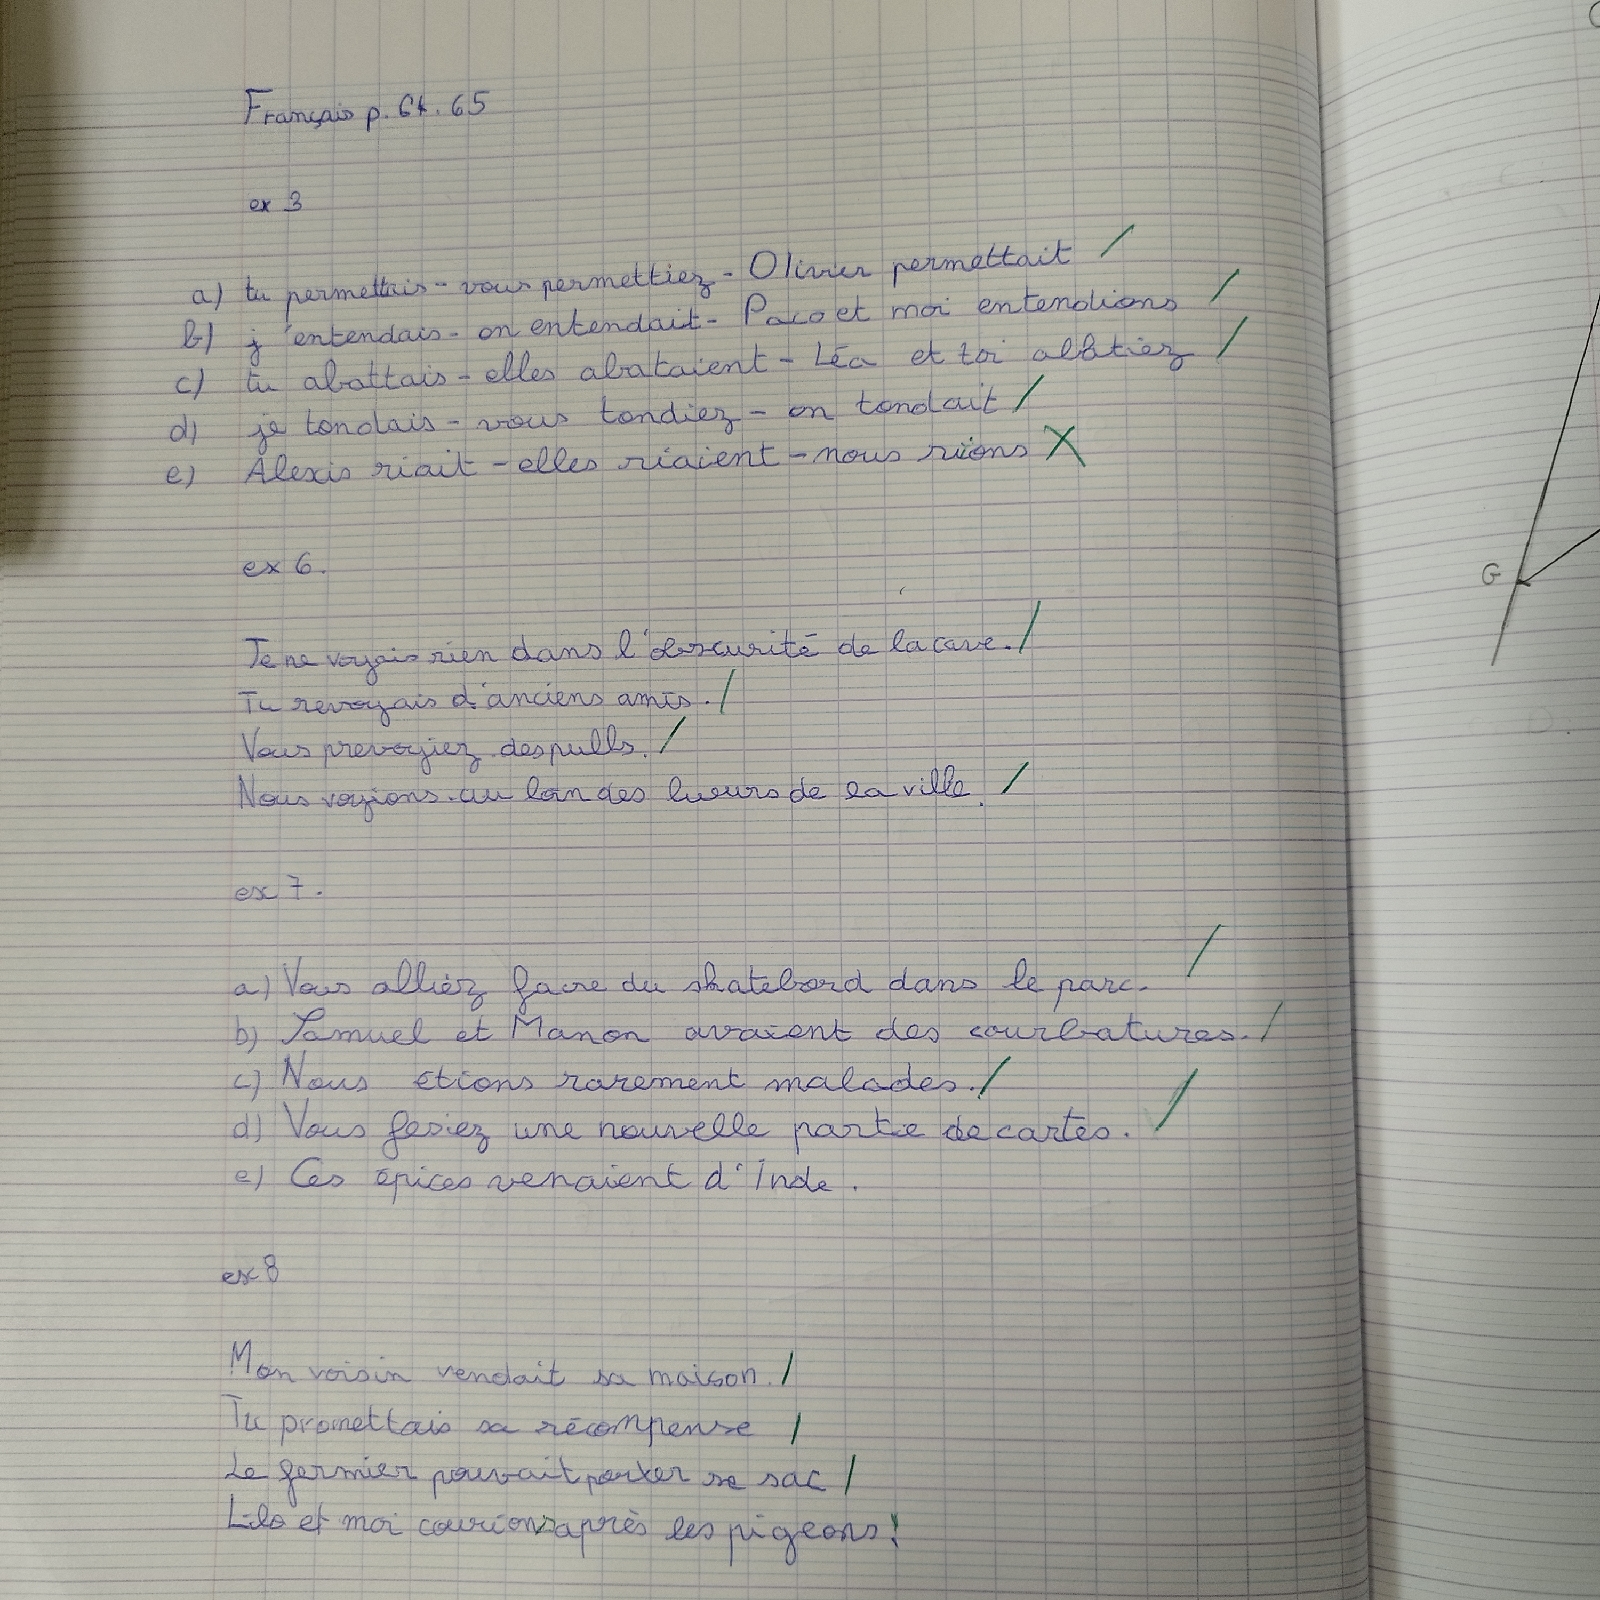 Français p. 64. 65
ex 3
a) tu permettais - vous permettiez - Olivier permettait
b) j'entendais - on entendait - Paco et moi entendions
c) tu abattais - elles abataient - Léa et toi abbtiez
d) je tondais - vous tondiez - on tondait
e) Alexis riait - elles riaient - nous riions
ex 6.
Je ne voyais rien dans l'obscurité de la cave.
Tu revoyais d'anciens amis.
Vous prevoyiez des pulls.
Nous voyions au loin des lueurs de la ville.
ex 7.
a) Vous alliez faire du skatebord dans le parc.
b) Samuel et Manon avaient des courbatures.
c) Nous étions rarement malades.
d) Vous fesiez une nouvelle partie de cartes.
e) Ces épices venaient d'Inde.
ex 8
Mon voisin vendait sa maison.
Tu promettais sa récompense
Le fermier pouvait porter se sac
Lilo et moi courions après les pigeons!
G